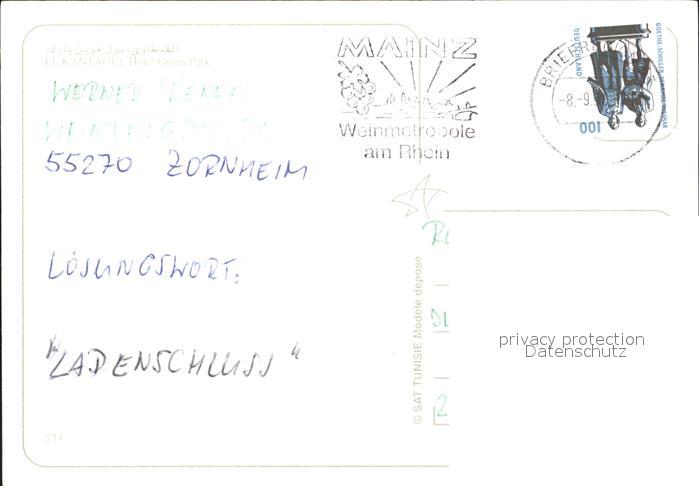 القنطاوي، هول قرين بارك
EL KANTAOUI, Hotel Green Park
WERNER
55270 ZORNHEIM
LÖSUNGSWORT:
"LADENSCHLUSS"
221
MAINZ
Weinmetropole
am Rhein
BRIEF
-8.-9.
GOETHE-SCHILLER-DENKMAL WEIMAR
DEUTSCHLAND
100
© SAT TUNISIE Modèle déposé
2
privacy protection
Datenschutz